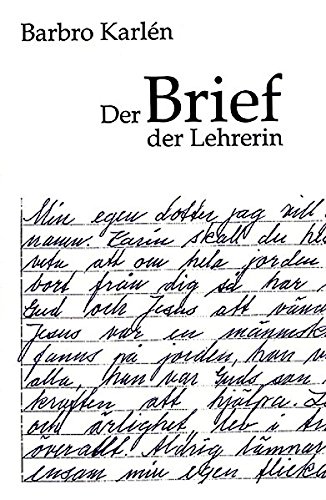 Barbro Karlén
Der Brief
der Lehrerin
Min egen dotter jag vill
namn. Karin skall du he
veta att om hela jorden
bort från dig så har
Gud och Jesus att vänd
Jesus var en människ
fanns på jorden, han v
alla, han var Guds son
kraften att hjälpa.
och ärlighet, lev i
överallt. Aldrig lämnar
ensam min egen flicka